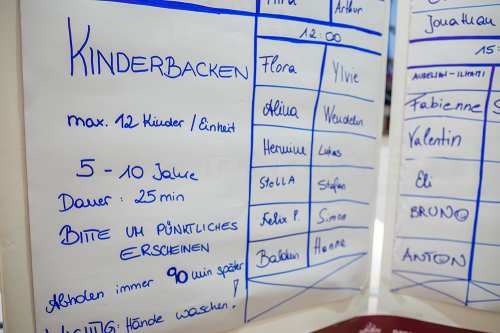 KINDERBACKEN
max. 12 Kinder / Einheit
5 - 10 Jahre
Dauer : 25 min
BITTE UM PÜNKTLICHES
ERSCHEINEN
Abholen immer 90 min später
Hände waschen!
Arthur
12:00
Flora Ylvie
Alina Wendelin
Hermine Lukas
STELLA Stefan
Felix P. Simon
Balduin Hanna
Jonathan
15:
AURELIAN-ILHAMI
Fabienne
Valentin
Eli
BRUNO
ANTON